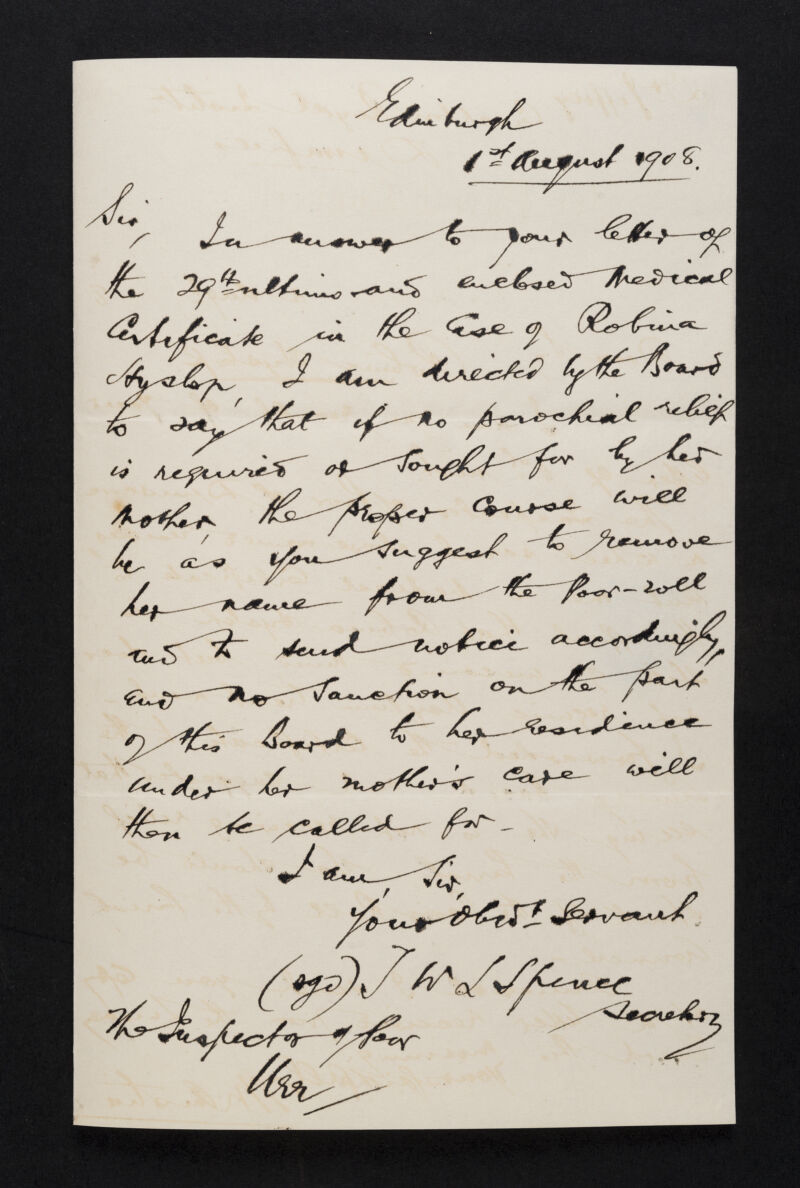 Edinburgh
1st August 1908.
Sir, In answer to your letter of
the 29th ultimo and enclosed Medical
Certificate in the Case of Robina
Hyslop, I am directed by the Board
to say that if no parochial relief
is required or sought for by her
mother, the proper course will
be as you suggest to remove
her name from the Poor-roll
and to send notice accordingly,
and no sanction on the part
of this Board to her residence
under her mother's care will
then be called for -
I am, Sir,
Your Obedt. Servant
(sgd) T W L Spence
Secretary
The Inspector of Poor
Urr